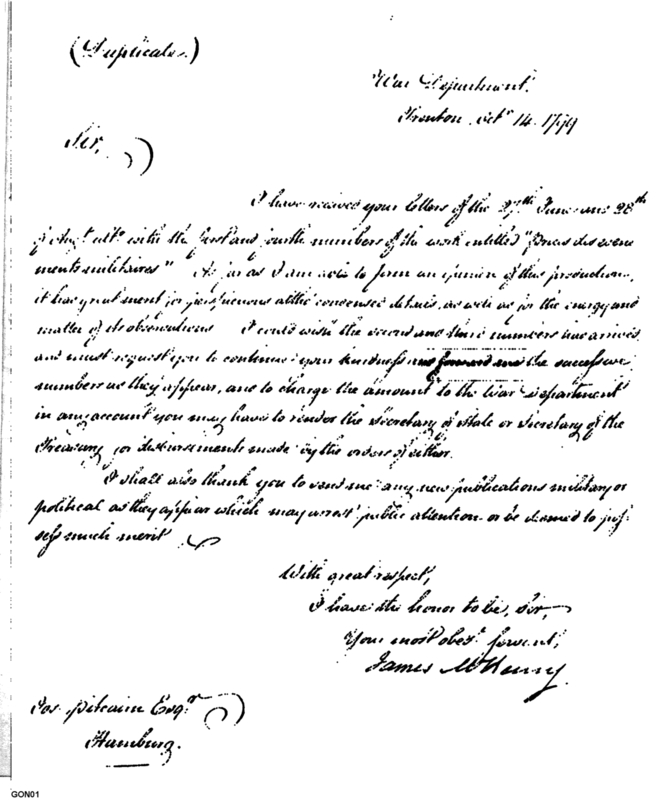 (Duplicate.)
War Department.
Trenton Octr 14. 1799
Sir,
I have received your letters of the 27th June and 28th
of Augt ulto with the first and fourth numbers of the work entitled "Precis des evene
ments militaires" As far as I am able to form an opinion of this production,
it has great merit for perspicuous altho condensed details, as well as for the energy and
matter of its observations I could wish the second and third numbers had arrived
and must request you to continue your kindness and forward me the successive
numbers as they appear, and to charge the amount to the War Department
in any account you may have to render the Secretary of State or Secretary of the
Treasury for disbursements made by the orders of either.
I shall also thank you to send me any new publications military or
political as they appear which may arrest public attention or be deemed to pos-
sess much merit
With great respect,
I have the honor to be, Sir,
Your most obest servant,
James McHenry.
Jos. Pitcairn Esqr
Hamburg.
GON01